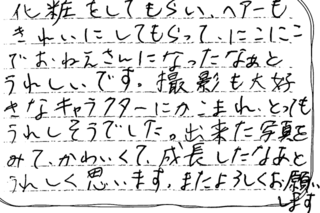 化粧をしてもらい、ヘアーも
きれいにしてもらって、にこにこ
でおねえさんになったなぁと
うれしいです。撮影も大好
きなキャラクターにかこまれ、とっても
うれしそうでした。出来た写真を
みて、かわいくて、成長したなあと
うれしく思います。またよろしくお願い
します